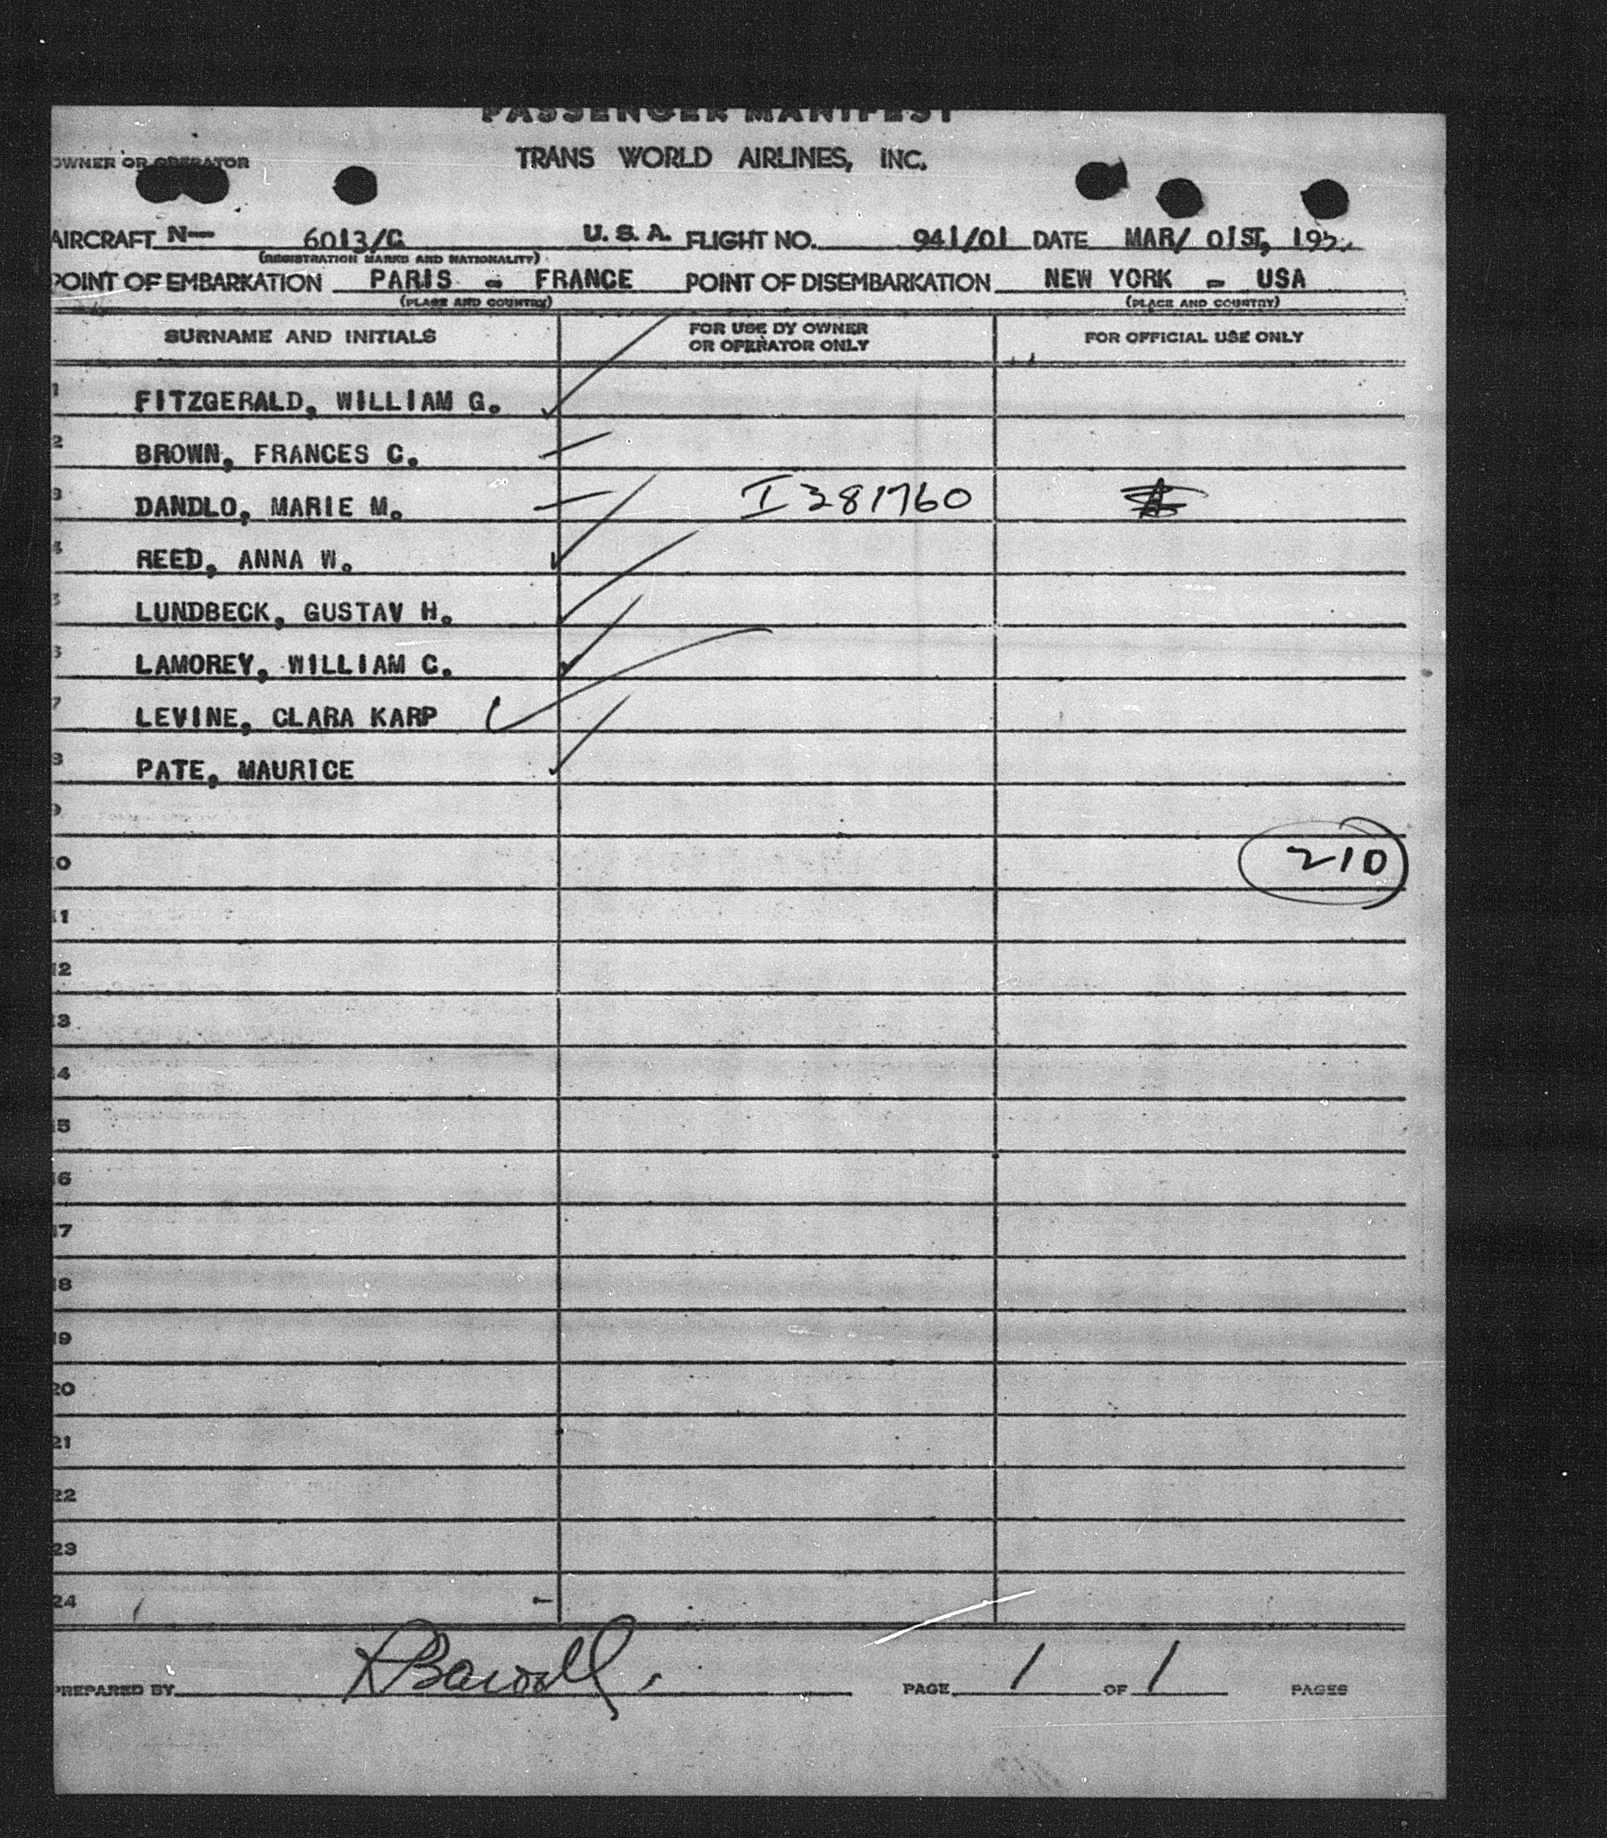 PASSENGER MANIFEST
OWNER OR OPERATOR TRANS WORLD AIRLINES, INC.
AIRCRAFT N— 6013/C U. S. A. FLIGHT NO. 941/01 DATE MAR/ 01ST,
(REGISTRATION MARKS AND NATIONALITY)
POINT OF EMBARKATION PARIS - FRANCE POINT OF DISEMBARKATION NEW YORK - USA
(PLACE AND COUNTRY) (PLACE AND COUNTRY)
SURNAME AND INITIALS FOR USE BY OWNER OR OPERATOR ONLY FOR OFFICIAL USE ONLY
1 FITZGERALD, WILLIAM G.
2 BROWN, FRANCES C.
3 DANDLO, MARIE M. I 381760
4 REED, ANNA W.
5 LUNDBECK, GUSTAV H.
6 LAMOREY, WILLIAM C.
7 LEVINE, CLARA KARP
8 PATE, MAURICE
9
10 210
11
12
13
14
15
16
17
18
19
20
21
22
23
24
PREPARED BY PAGE 1 OF 1 PAGES